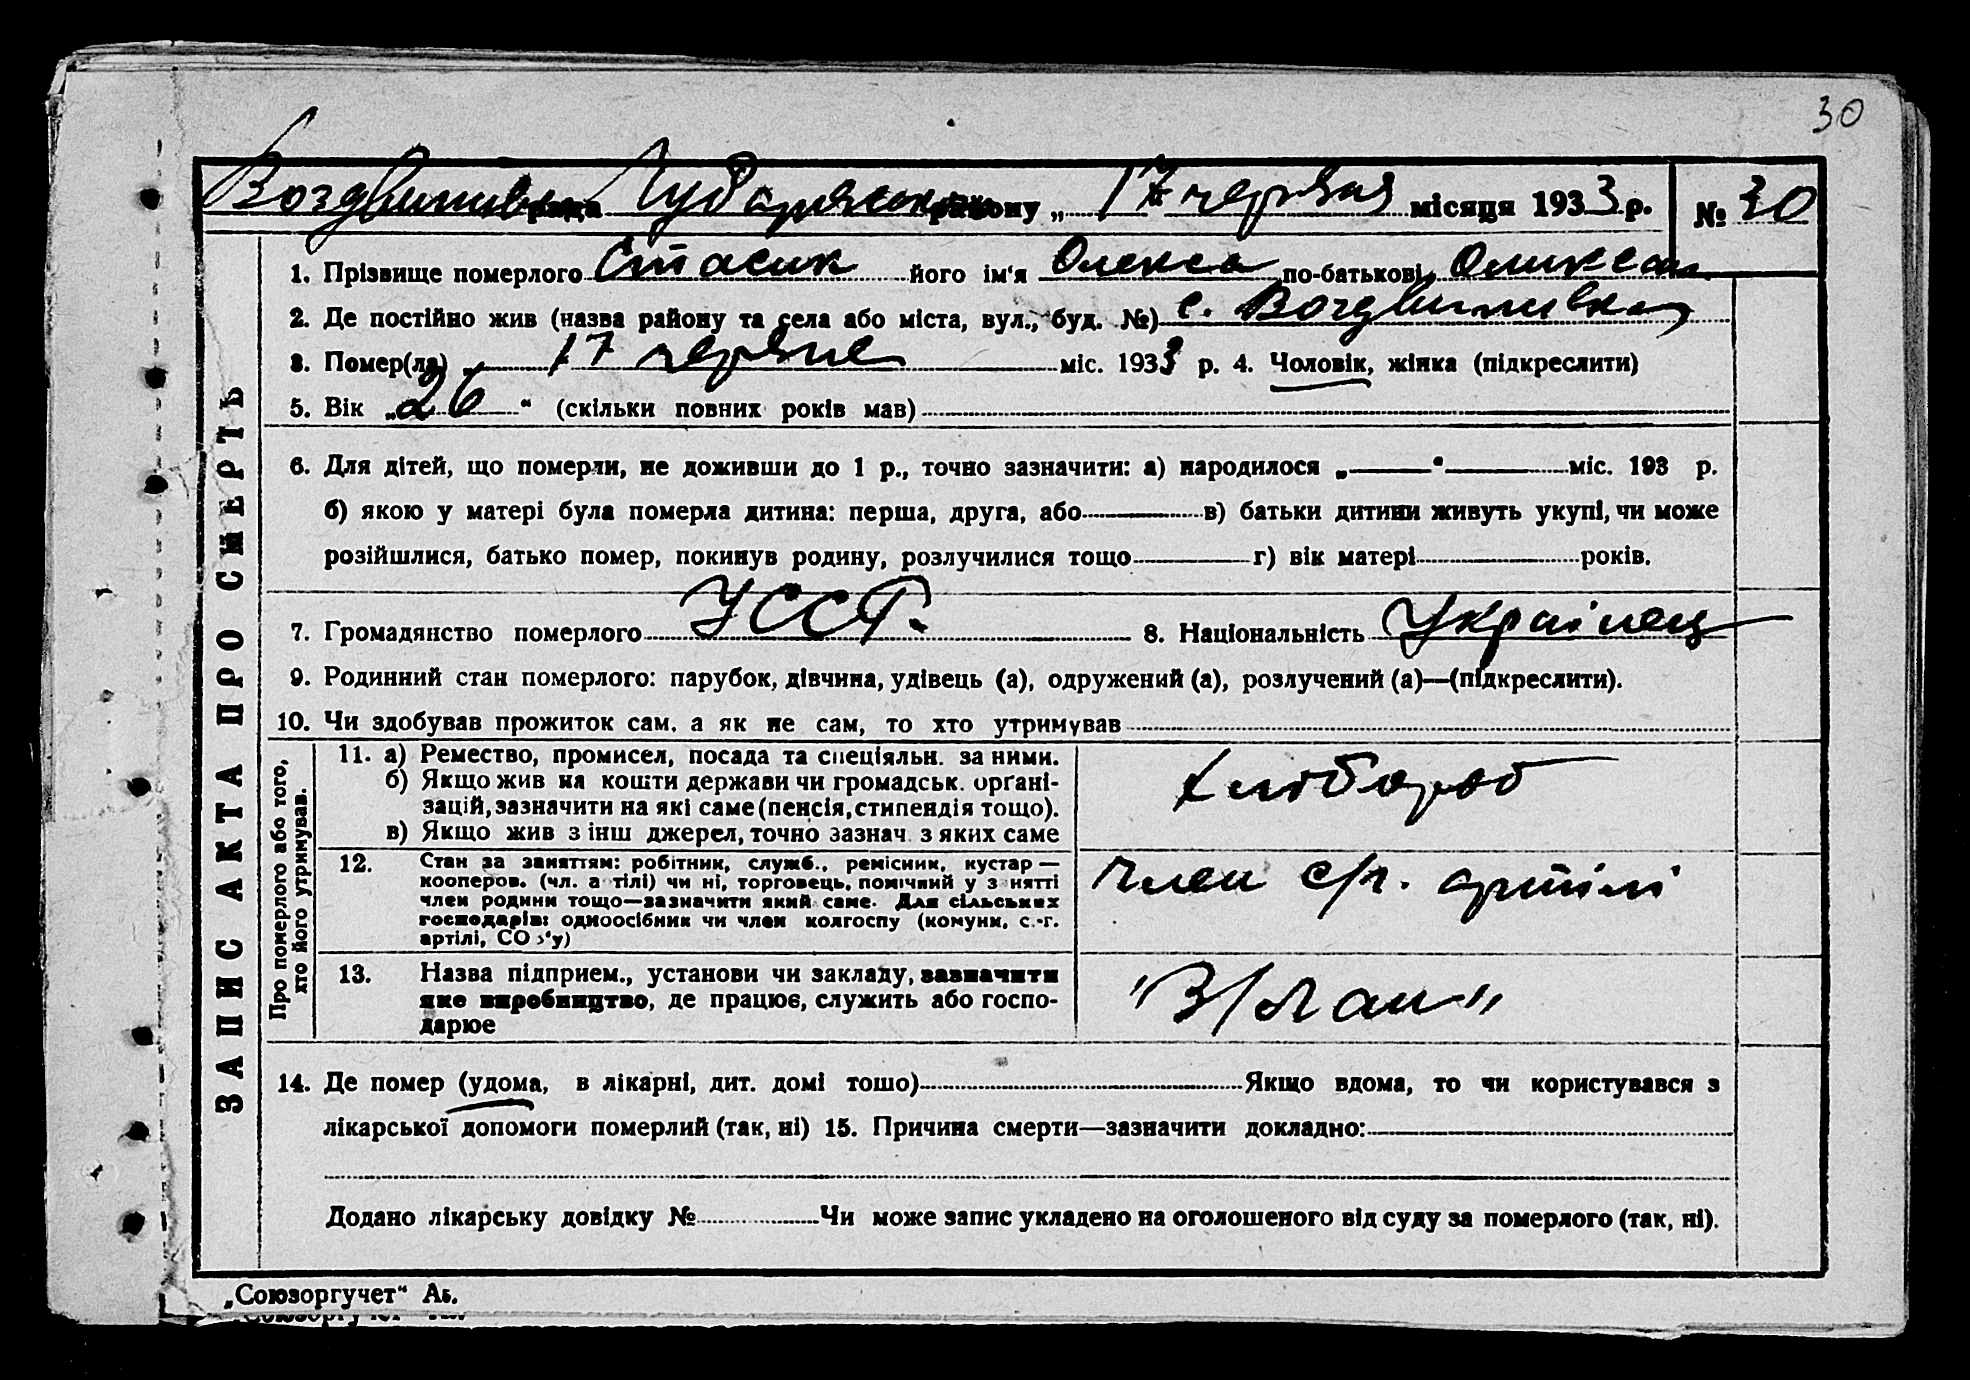 30
Воздвижівська рада Чубарівського району „ 17 червня місяця 1933 р. № 30
1. Прізвище померлого Стасик його ім'я Олекса по-батькові
2. Де постійно жив (назва району та села або міста, вул., буд. №) с. Воздвижівка
3. Помер(ла) „ 17 червня міс. 1933 р. 4. Чоловік, жінка (підкреслити)
5. Вік „26“ (скільки повних років мав)
6. Для дітей, що померли, не доживши до 1 р., точно зазначити: а) народилося „ “ міс. 193 р.
б) якою у матері була померла дитина: перша, друга, або в) батьки дитини живуть укупі, чи може
розійшлися, батько помер, покинув родину, розлучилися тощо г) вік матері років.
7. Громадянство померлого УССР. 8. Національність Українец
9. Родинний стан померлого: парубок, дівчина, удівець (а), одружений (а), розлучений (а)—(підкреслити).
10. Чи здобував прожиток сам, а як не сам, то хто утримував
ЗАПИС АКТА ПРО СМЕРТЬ
Про померлого або того,
хто його утримував.
11. а) Ремество, промисел, посада та спеціяльн. за ними.
б) Якщо жив на кошти держави чи громадськ. органі-
зацій, зазначити на які саме (пенсія, стипендія тощо).
в) Якщо жив з інш джерел, точно зазнач. з яких саме
хлібороб
12. Стан за заняттям: робітник, служб., ремісник, кустар —
кооперов. (чл. а тілі) чи ні, торговець, помічний у з нятті
член родини тощо—зазначити який саме. Для сільських
господарів: одноосібник чи член колгоспу (комуни, с.-г.
артілі, СО з'у)
член с/г. артілі
13. Назва підприєм., установи чи закладу, зазначити
яке виробництво, де працює, служить або госпо-
дарює
14. Де помер (удома, в лікарні, дит. домі тощо) Якщо вдома, то чи користувався з
лікарської допомоги померлий (так, ні) 15. Причина смерти—зазначити докладно:
Додано лікарську довідку № Чи може запис укладено на оголошеного від суду за померлого (так, ні).
„Союзоргучет“ Аь.